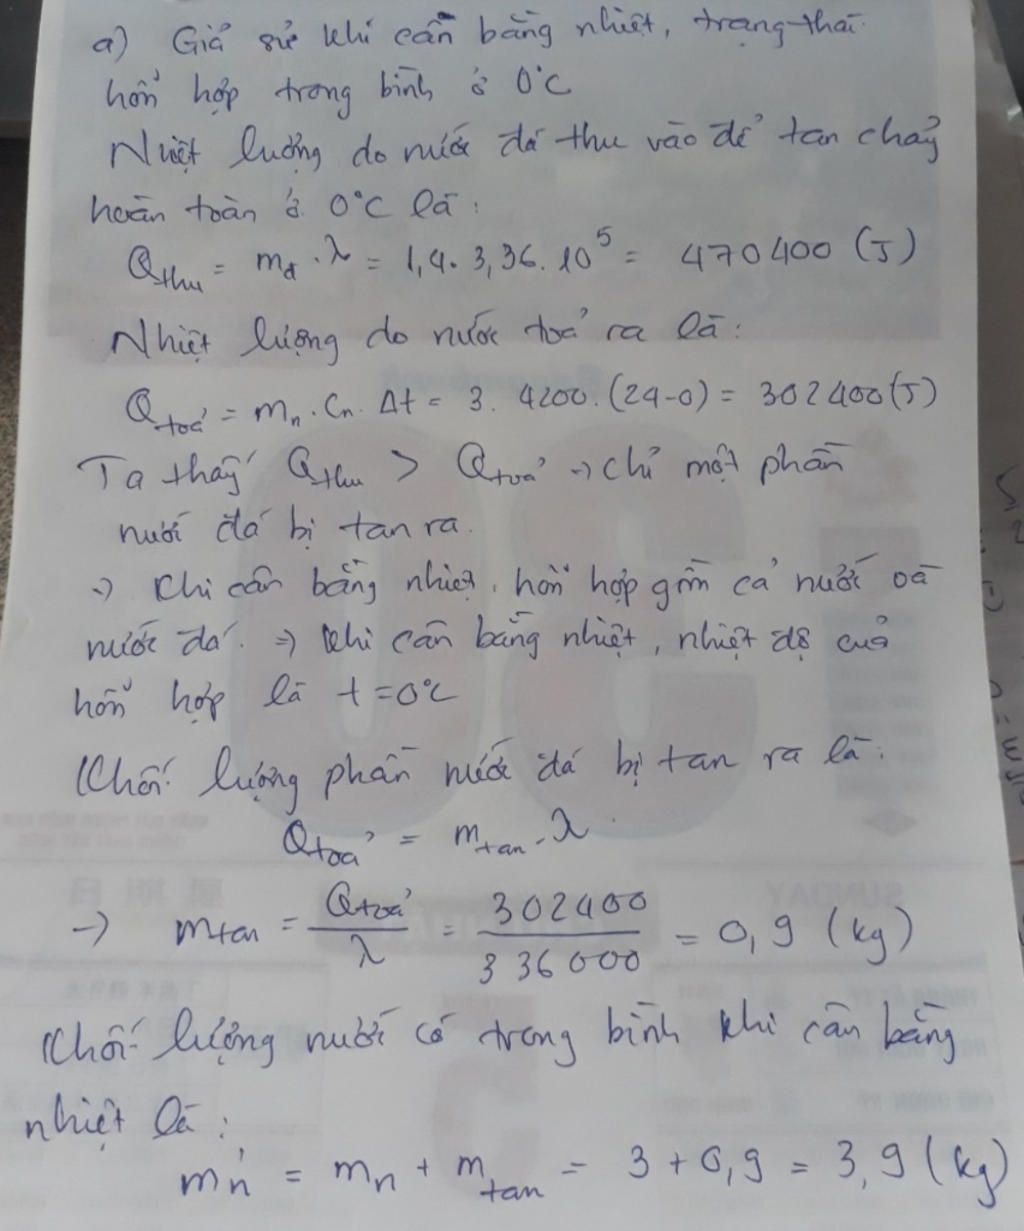 a) Giả sử khi cân bằng nhiệt, trạng thái
hỗn hợp trong bình ở 0°C
Nhiệt lượng do nước đá thu vào để tan chảy
hoàn toàn ở 0°C là:
Qthu = mđ . λ = 1,4. 3,36. 10⁵ = 470400 (J)
Nhiệt lượng do nước toả ra là:
Qtoả = mn . Cn. Δt = 3. 4200. (24-0) = 302400 (J)
Ta thấy Qthu > Qtoả => chỉ một phần
nước đá bị tan ra.
=> Khi cân bằng nhiệt, hỗn hợp gồm cả nước và
nước đá. => Khi cân bằng nhiệt, nhiệt độ của
hỗn hợp là t = 0°C
Khối lượng phần nước đá bị tan ra là:
Qtoả = mtan . λ
→ mtan = Qtoả / λ = 302400 / 336000 = 0,9 (kg)
Khối lượng nước có trong bình khi cân bằng
nhiệt là:
mn' = mn + mtan = 3 + 0,9 = 3,9 (kg)